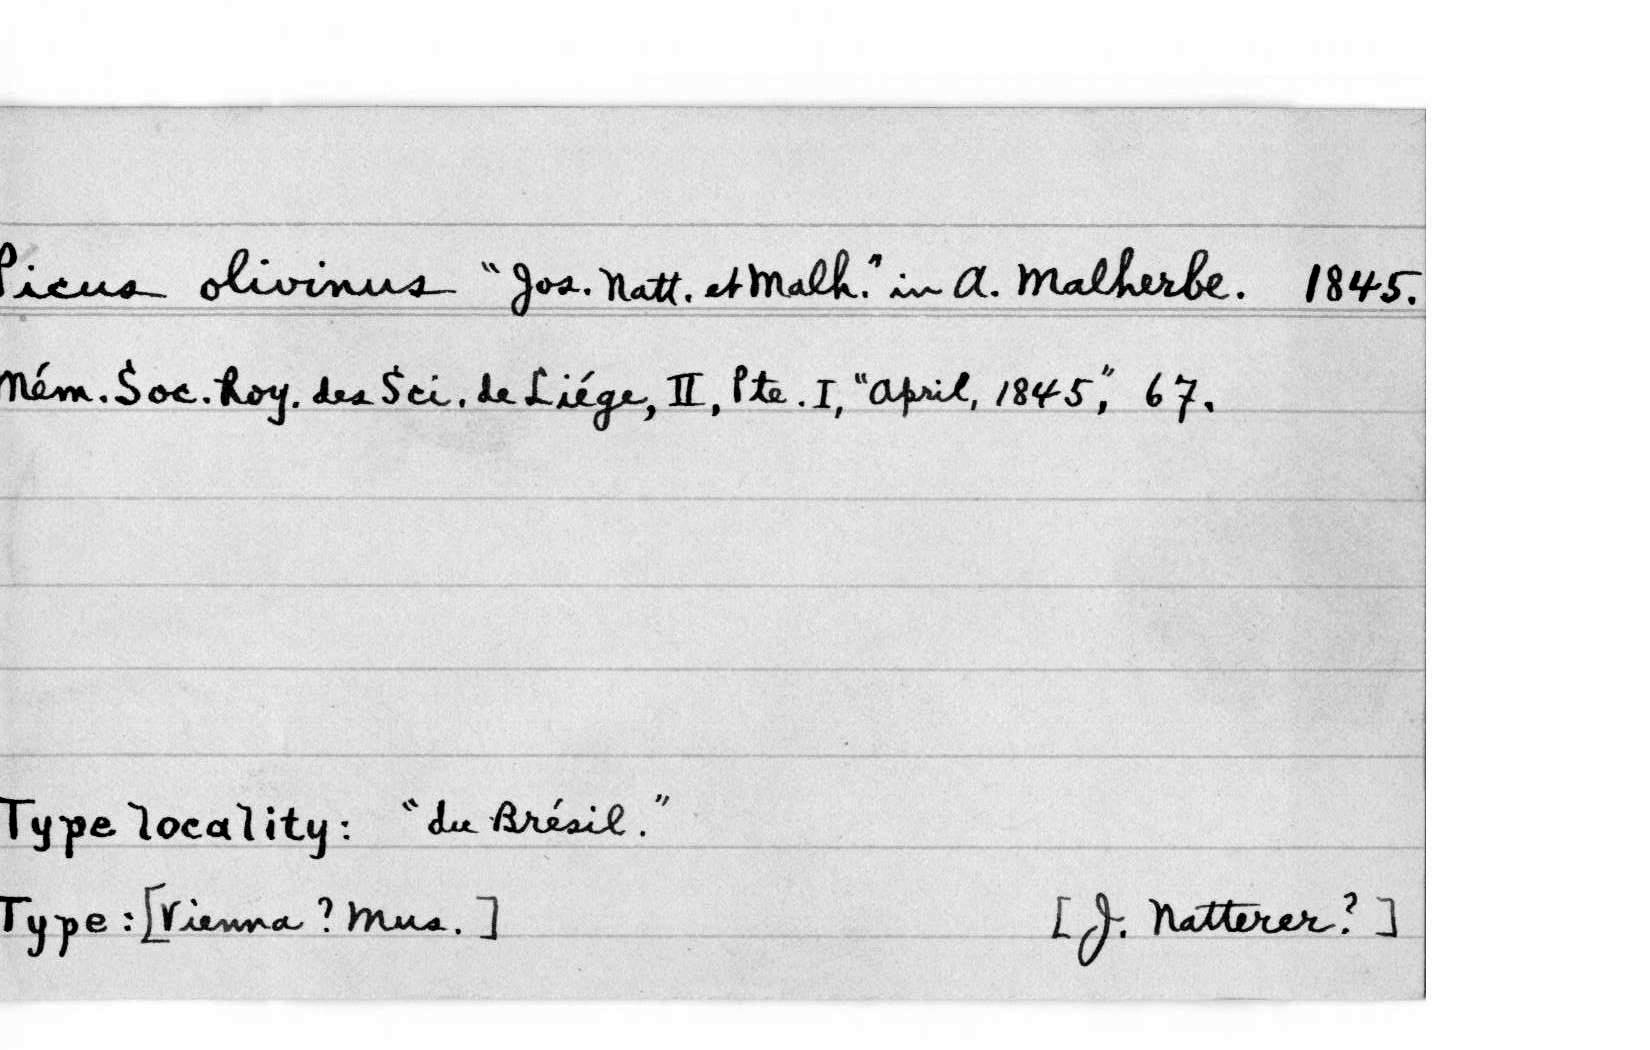 Picus olivinus "Jos. Natt. et Malh." in A. Malherbe. 1845.
Mém. Soc. Roy. des Sci. de Liége, II, Pte. I, "April, 1845", 67.
Type locality: "du Brésil."
Type: [Vienna ? Mus.] [J. Natterer?]